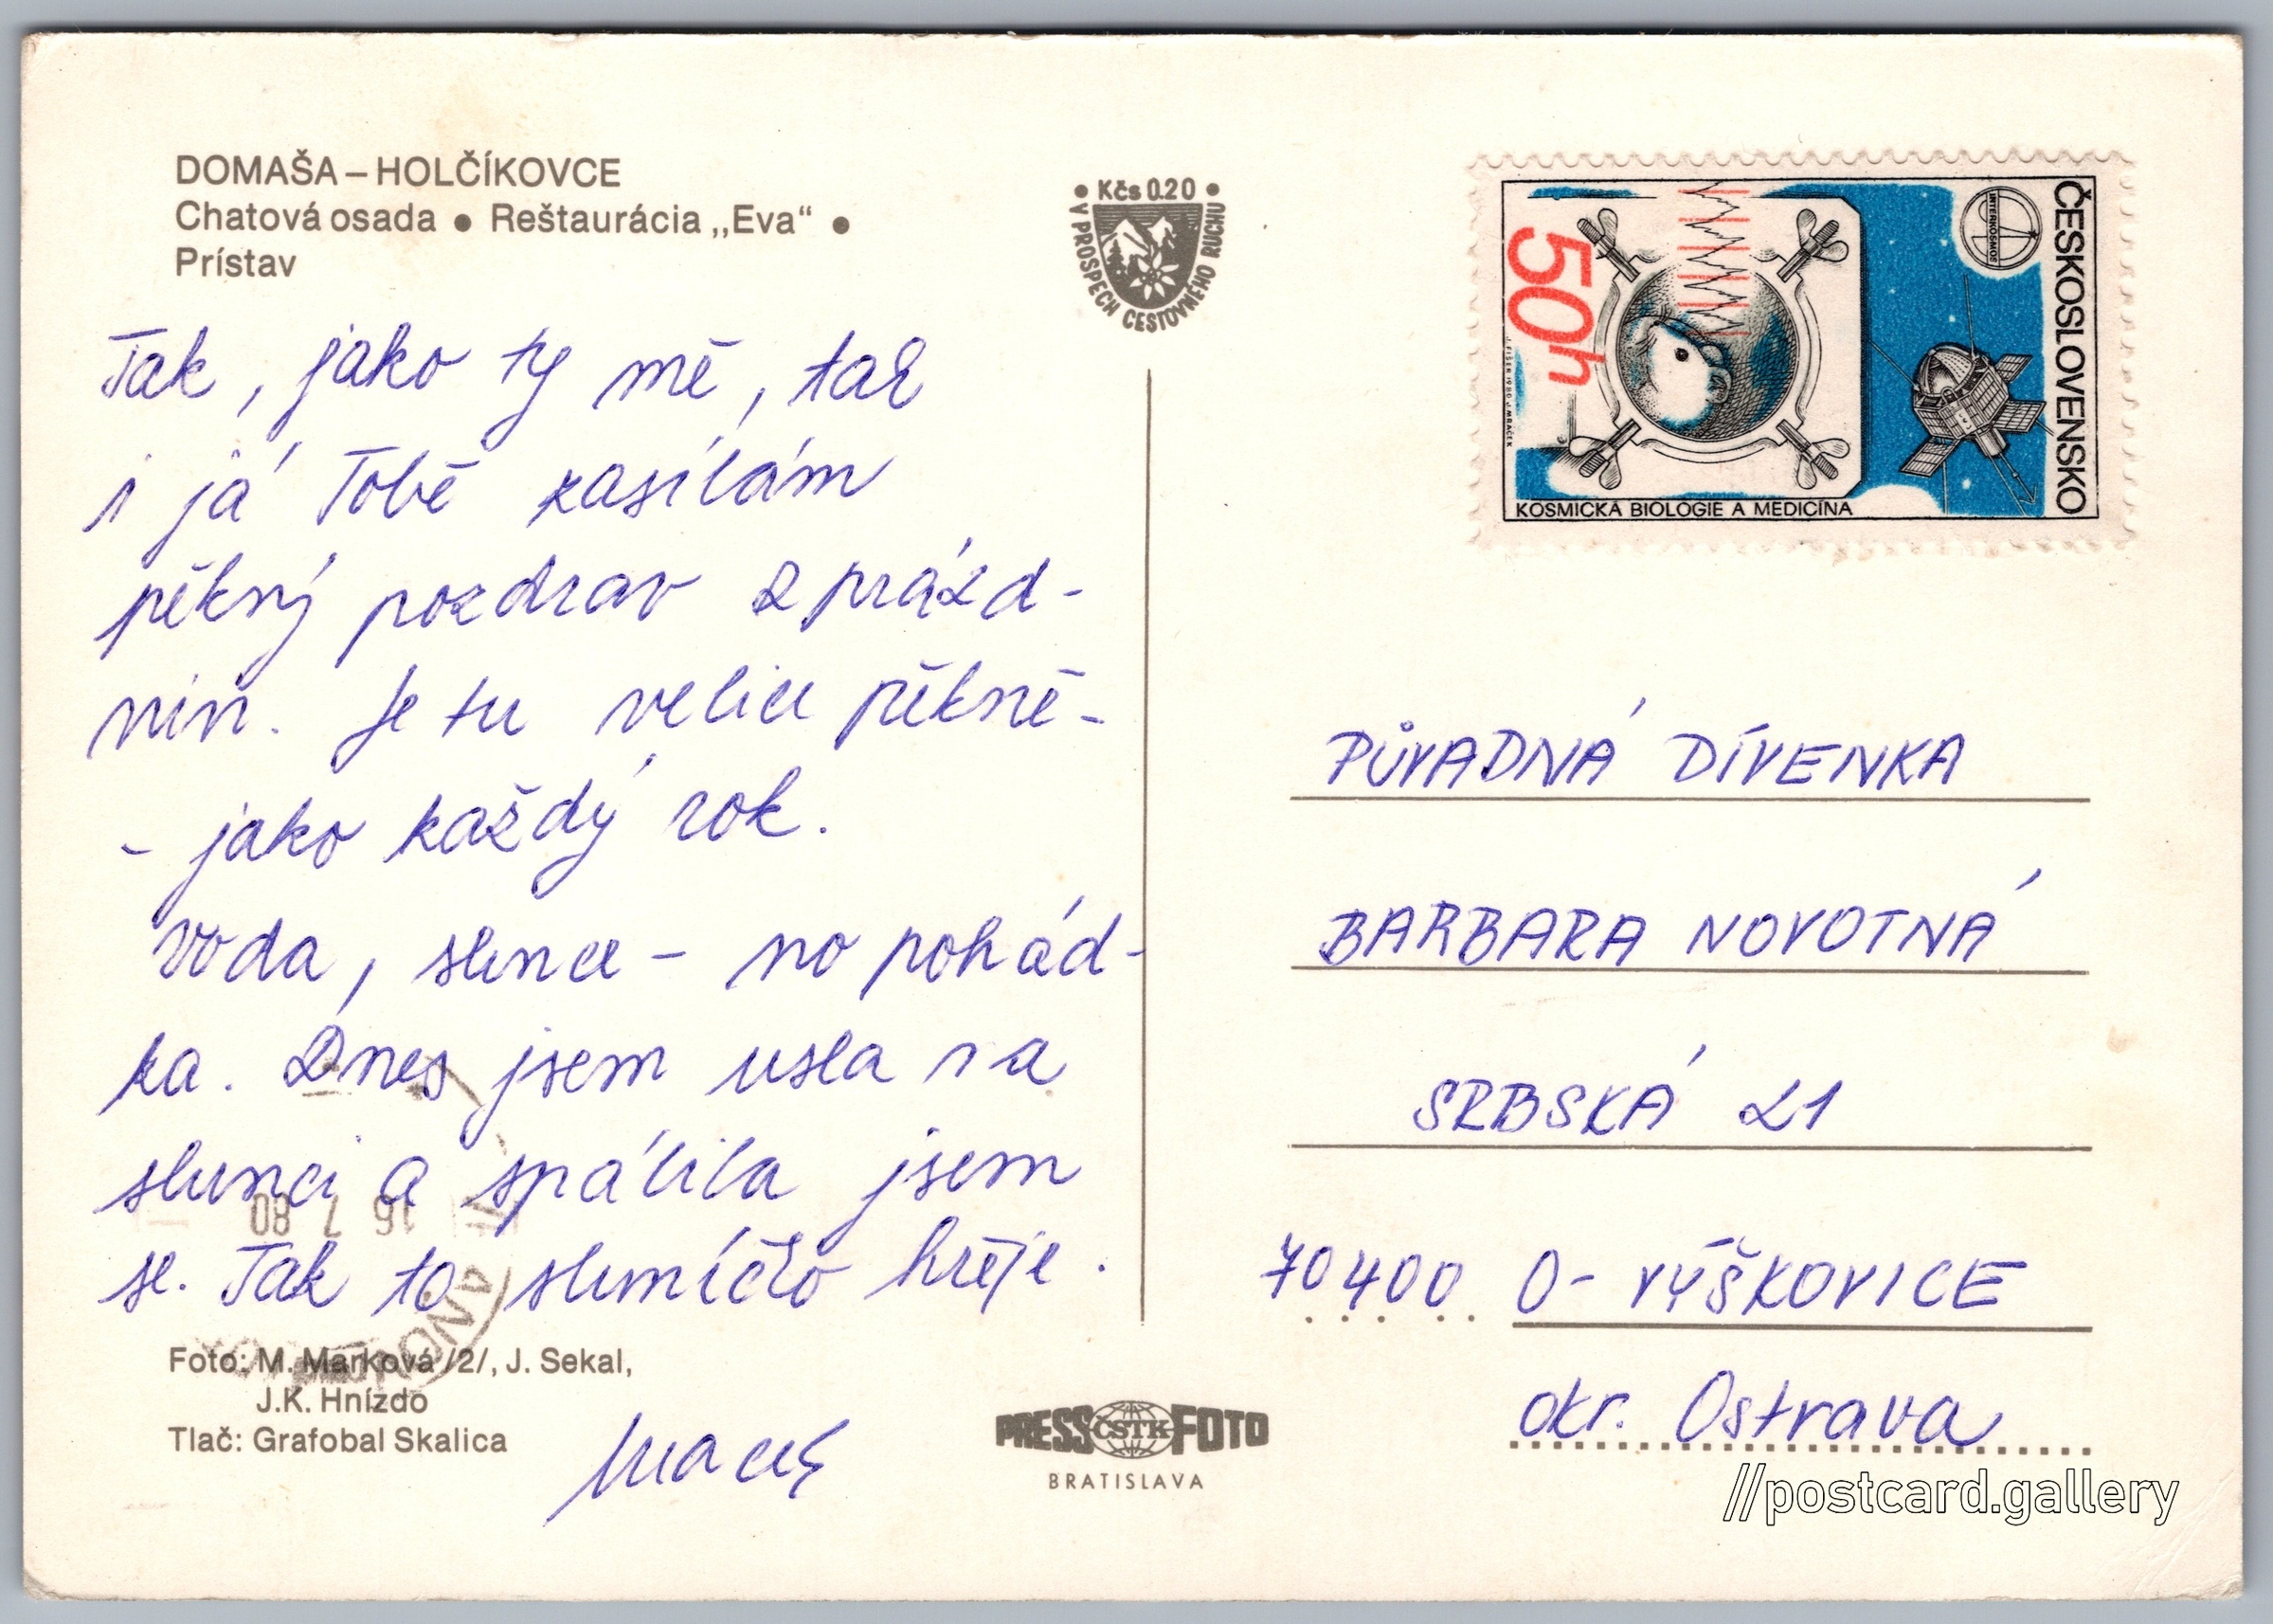 DOMAŠA – HOLČÍKOVCE
Chatová osada ● Reštaurácia „Eva“ ●
Prístav
• Kčs 0.20 •
V PROSPECH CESTOVNÉHO RUCHU
ČESKOSLOVENSKO
INTERKOSMOS
50h
J. FIŠER 1980 J. MRÁČEK
KOSMICKÁ BIOLOGIE A MEDICÍNA
Tak, jako ty mě, tak
i já Tobě zasílám
pěkný pozdrav z prázd-
nin. Je tu velice pěkně-
- jako každý rok.
Voda, slunce - no pohád-
ka. Dnes jsem usla na
slunci a spálila jsem
se. Tak to sluníčko hřeje.
16 7 80
PŮVADNÁ DÍVENKA
BARBARA NOVOTNÁ
SRBSKÁ 21
70400 O- VÝŠKOVICE
okr. Ostrava
Foto: M. Marková /2/, J. Sekal,
J.K. Hnízdo
Tlač: Grafobal Skalica
PRESS ČSTK FOTO
BRATISLAVA
//postcard.gallery